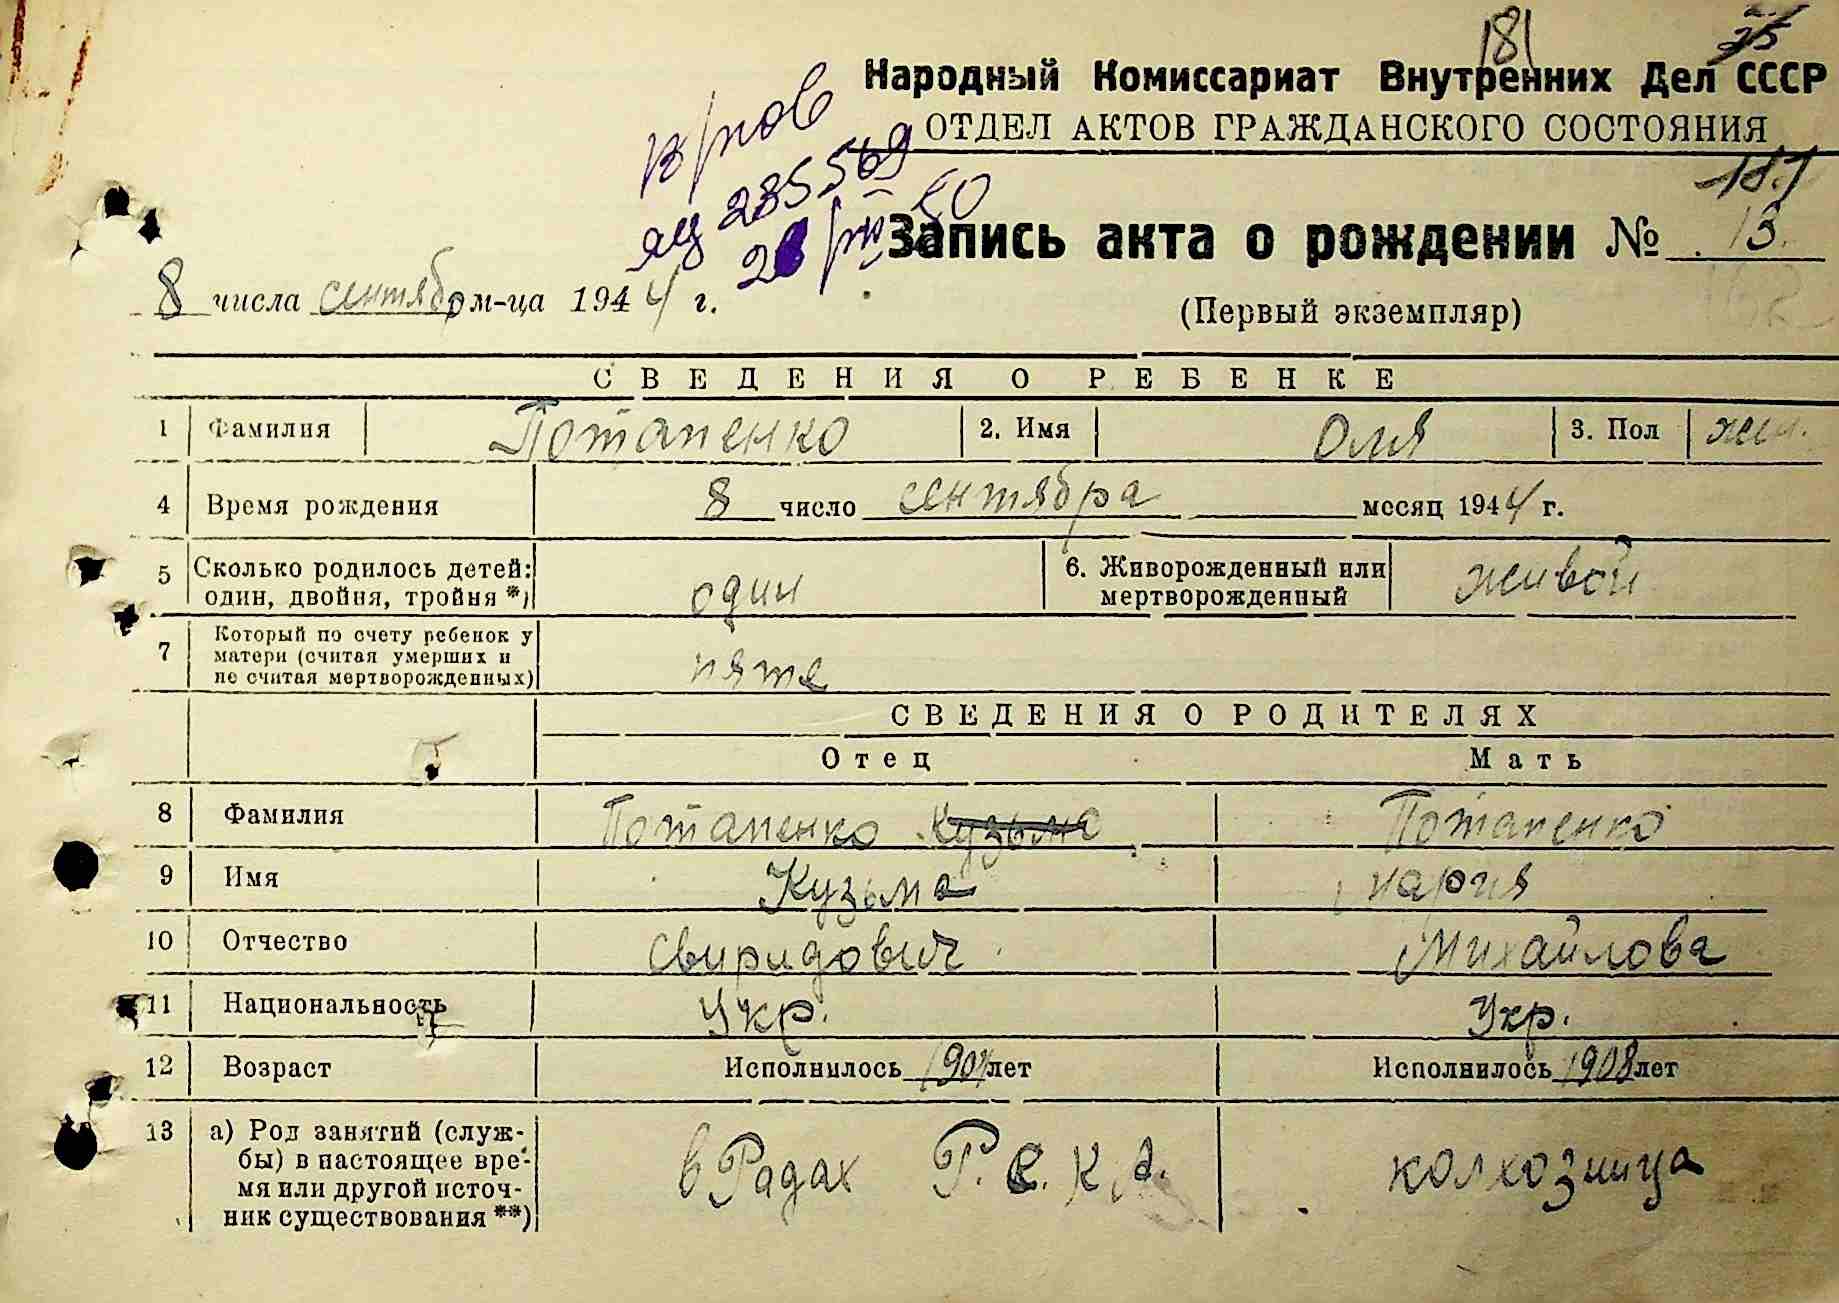 181 25
Народный Комиссариат Внутренних Дел СССР
ОТДЕЛ АКТОВ ГРАЖДАНСКОГО СОСТОЯНИЯ
яц 235569
Запись акта о рождении № 13.
8 числа сентябр м-ца 1944 г.
(Первый экземпляр)
СВЕДЕНИЯ О РЕБЕНКЕ
1 Фамилия Потапенко 2. Имя Оля 3. Пол жен.
4 Время рождения 8 число сентября месяц 1944 г.
5 Сколько родилось детей: один, двойня, тройня *) один 6. Живорожденный или мертворожденный живой
7 Который по счету ребенок у матери (считая умерших и не считая мертворожденных) пяте
СВЕДЕНИЯ О РОДИТЕЛЯХ
Отец Мать
8 Фамилия Потапенко Кузьма Потапенко
9 Имя Кузьма Мария
10 Отчество Свиридович Михайлова
11 Национальность Укр. Укр.
12 Возраст Исполнилось лет Исполнилось 1908 лет
13 а) Род занятий (служ-
бы) в настоящее вре-
мя или другой источ-
ник существования **)
в Радах Р.К.К.А. колхозница